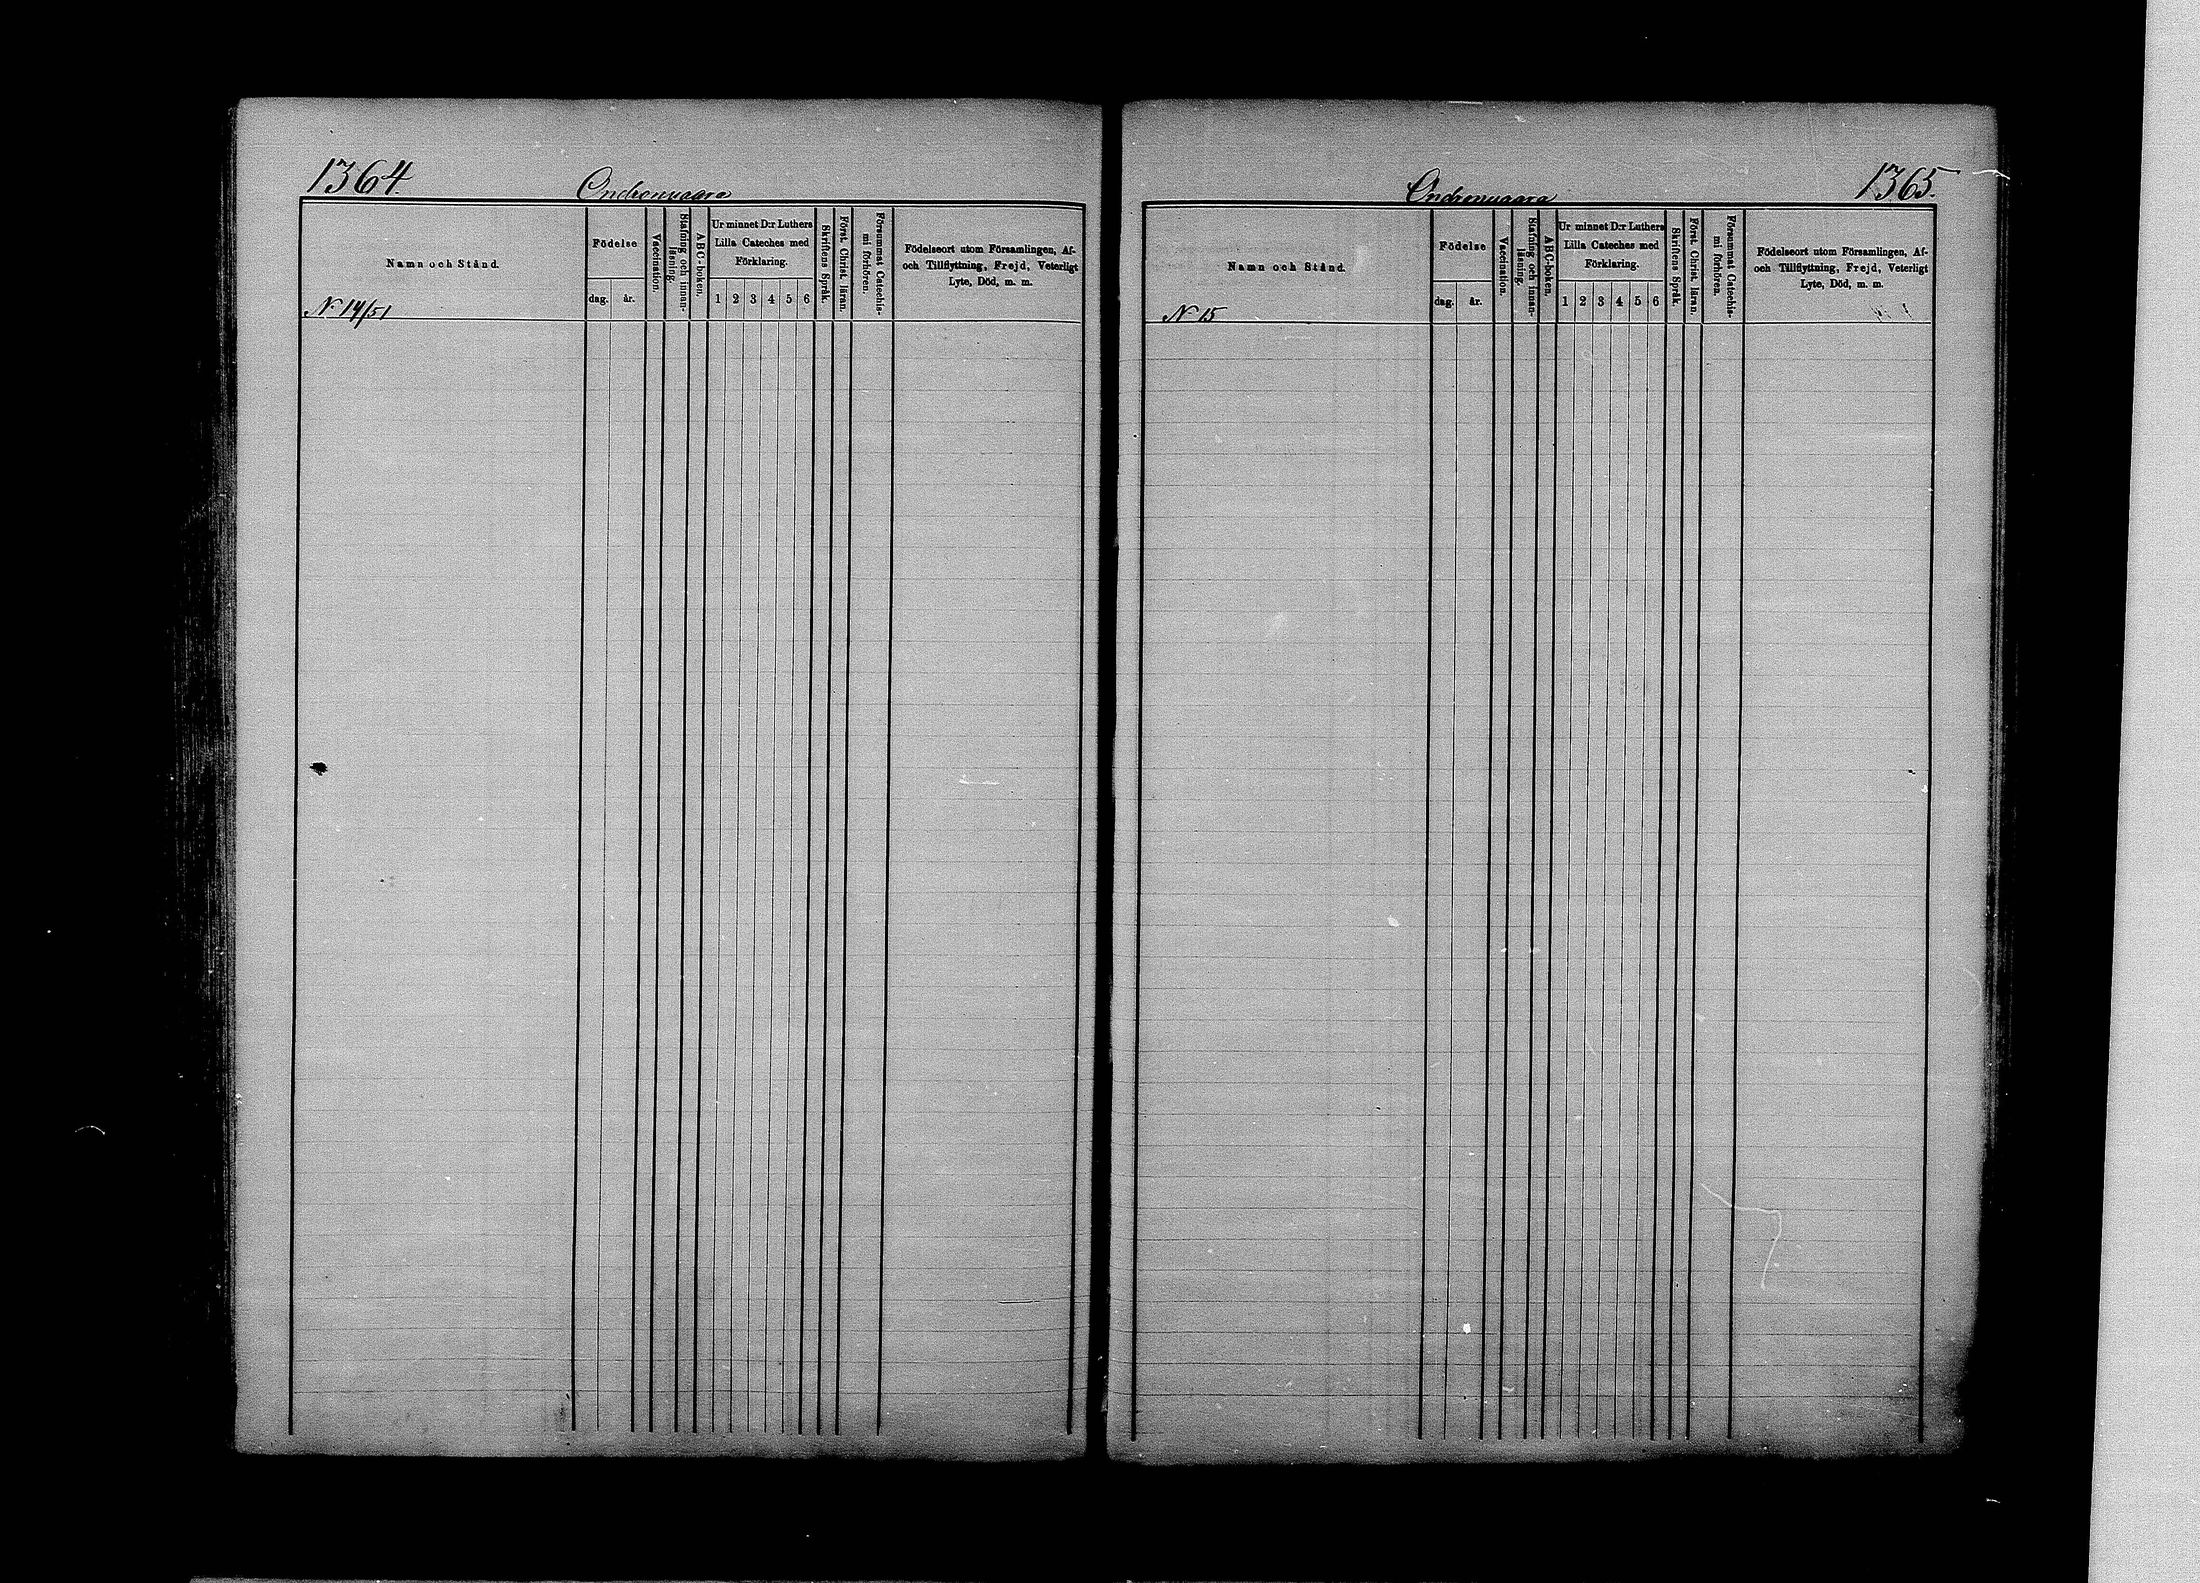 1364.
Ondronvaara
Namn och Stånd.
Födelse
dag.
år.
Vaccination.
Stafning och innan-
läsning.
ABC-boken.
Ur minnet D:r Luthers
Lilla Cateches med
Förklaring.
1 2 3 4 5 6
Skriftens Språk.
Först. Christ. läran.
Försummat Catechis-
mi förhören.
Födelseort utom Församlingen, Af-
och Tillflyttning, Frejd, Veterligt
Lyte, Död, m. m.
N 14/51
1365.
Ondronvaara
Namn och Stånd.
Födelse
dag.
år.
Vaccination.
Stafning och innan-
läsning.
ABC-boken.
Ur minnet D:r Luthers
Lilla Cateches med
Förklaring.
1 2 3 4 5 6
Skriftens Språk.
Först. Christ. läran.
Försummat Catechis-
mi förhören.
Födelseort utom Församlingen, Af-
och Tillflyttning, Frejd, Veterligt
Lyte, Död, m. m.
N 15